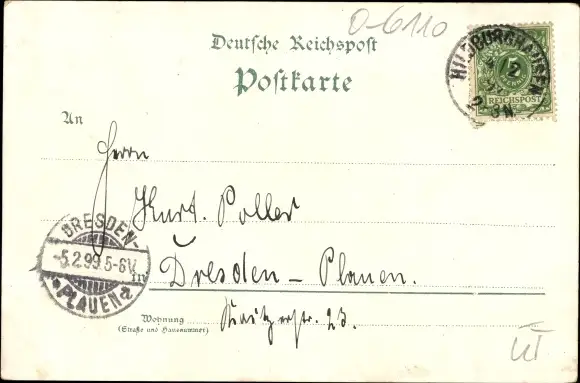 O-6110
Deutsche Reichspost
Postkarte
HILDBURGHAUSEN
2
2-3N.
5
REICHSPOST
An
Herrn
Kurt. Poller
DRESDEN-
-5.2.99.5-6V.
PLAUEN 2
in
Dresden – Plauen.
Wohnung
(Straße und Hausnummer)
str. 23.